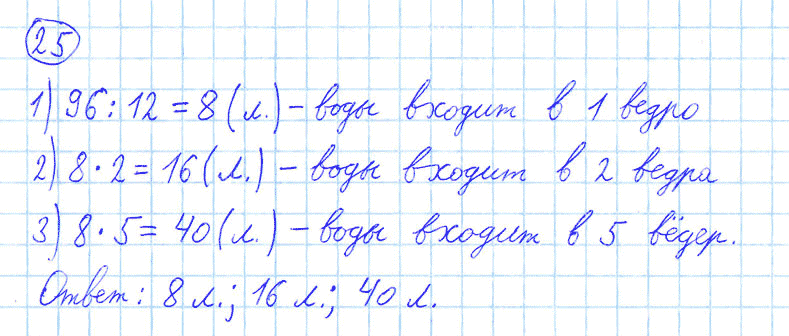 25
1) 96 : 12 = 8 (л.) – воды входит в 1 ведро
2) 8 · 2 = 16 (л.) – воды входит в 2 ведра
3) 8 · 5 = 40 (л.) – воды входит в 5 вёдер.
Ответ: 8 л.; 16 л.; 40 л.